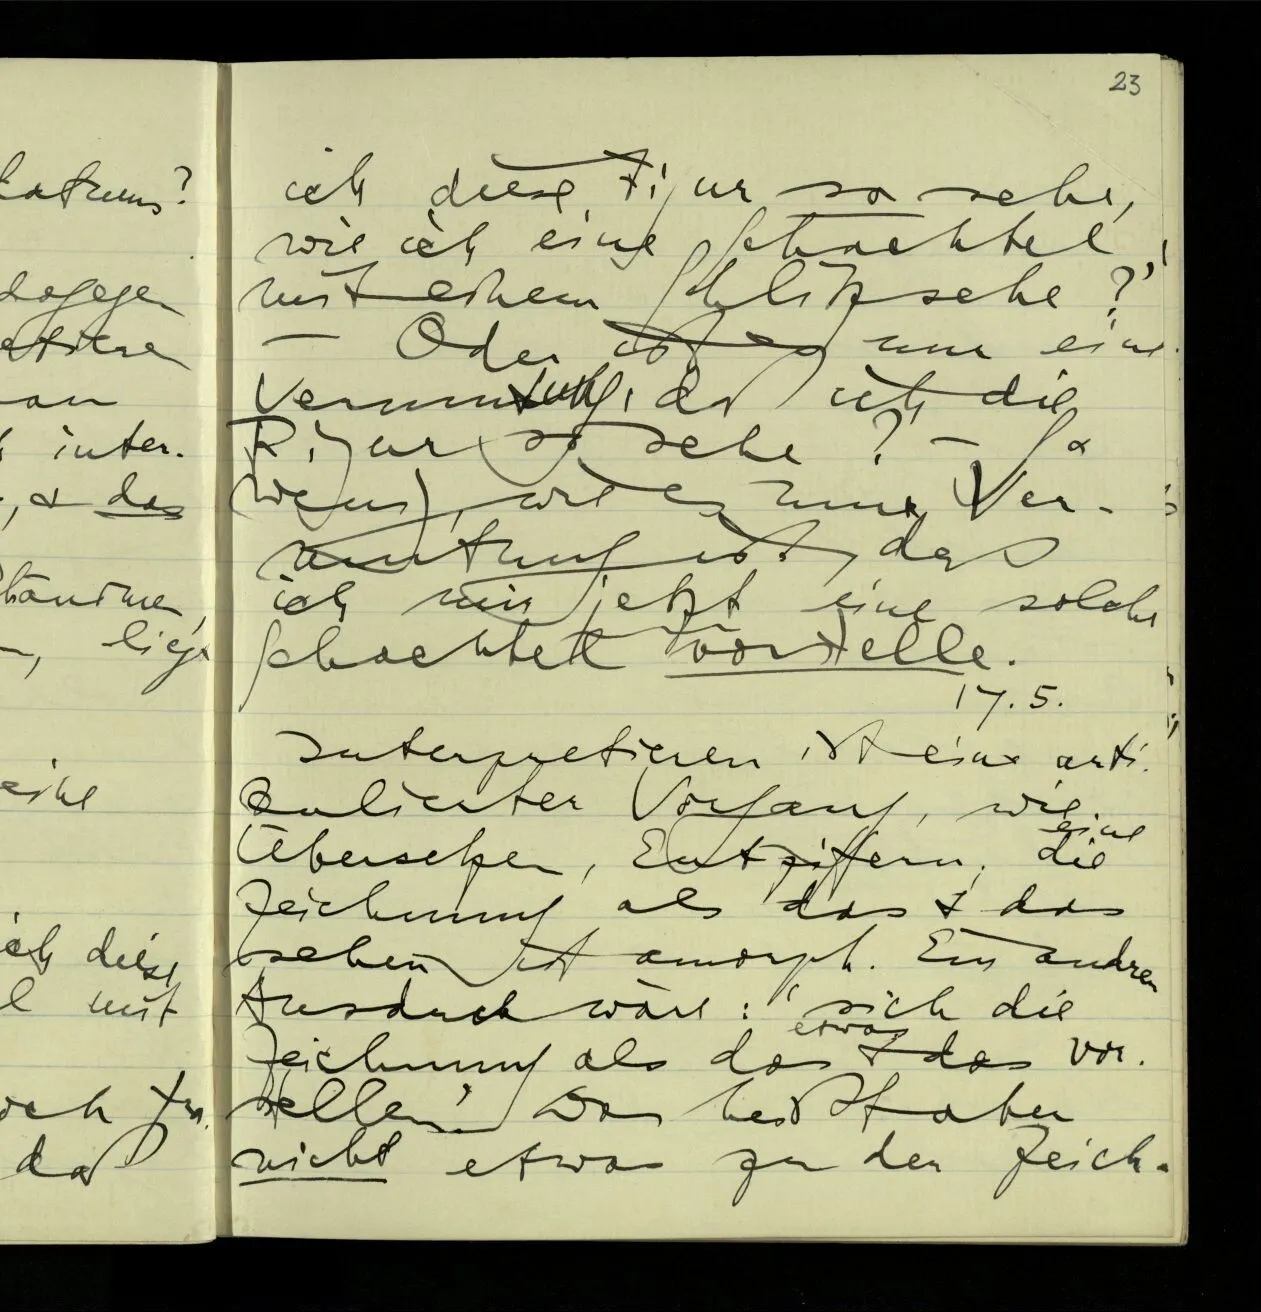 23
katrums?
dagegen
an
inter-
, & das
liegt
eine
ich diese
l mit
och
daß
ich diese Figur so sehe,
wie ich eine Schachtel
mit einem Schlitz sehe?'
– Oder ist es nur eine
Vermutung, daß ich die
Figur so sehe? – Ja
wenn, wie es nur Ver-
mutung ist, daß
ich mir jetzt eine solche
Schachtel vorstelle.
17. 5.
Interpretieren ist ein arti-
kulierter Vorgang, wie
eine
Übersetzen, Entziffern; die
Zeichnung als das & das
sehen ist amorph. Ein andrer
Ausdruck wäre: 'sich die
etwas
Zeichnung als das & das vor-
stellen'. Das heißt aber
nicht etwas zu der Zeich-